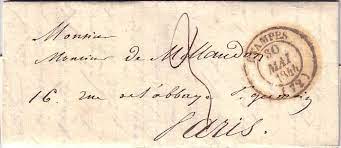 Monsieur
Monsieur de Mollandon
16, rue de l'abbaye St germain
Paris.
3
ÉTAMPES
30
MAI
1844
(72)